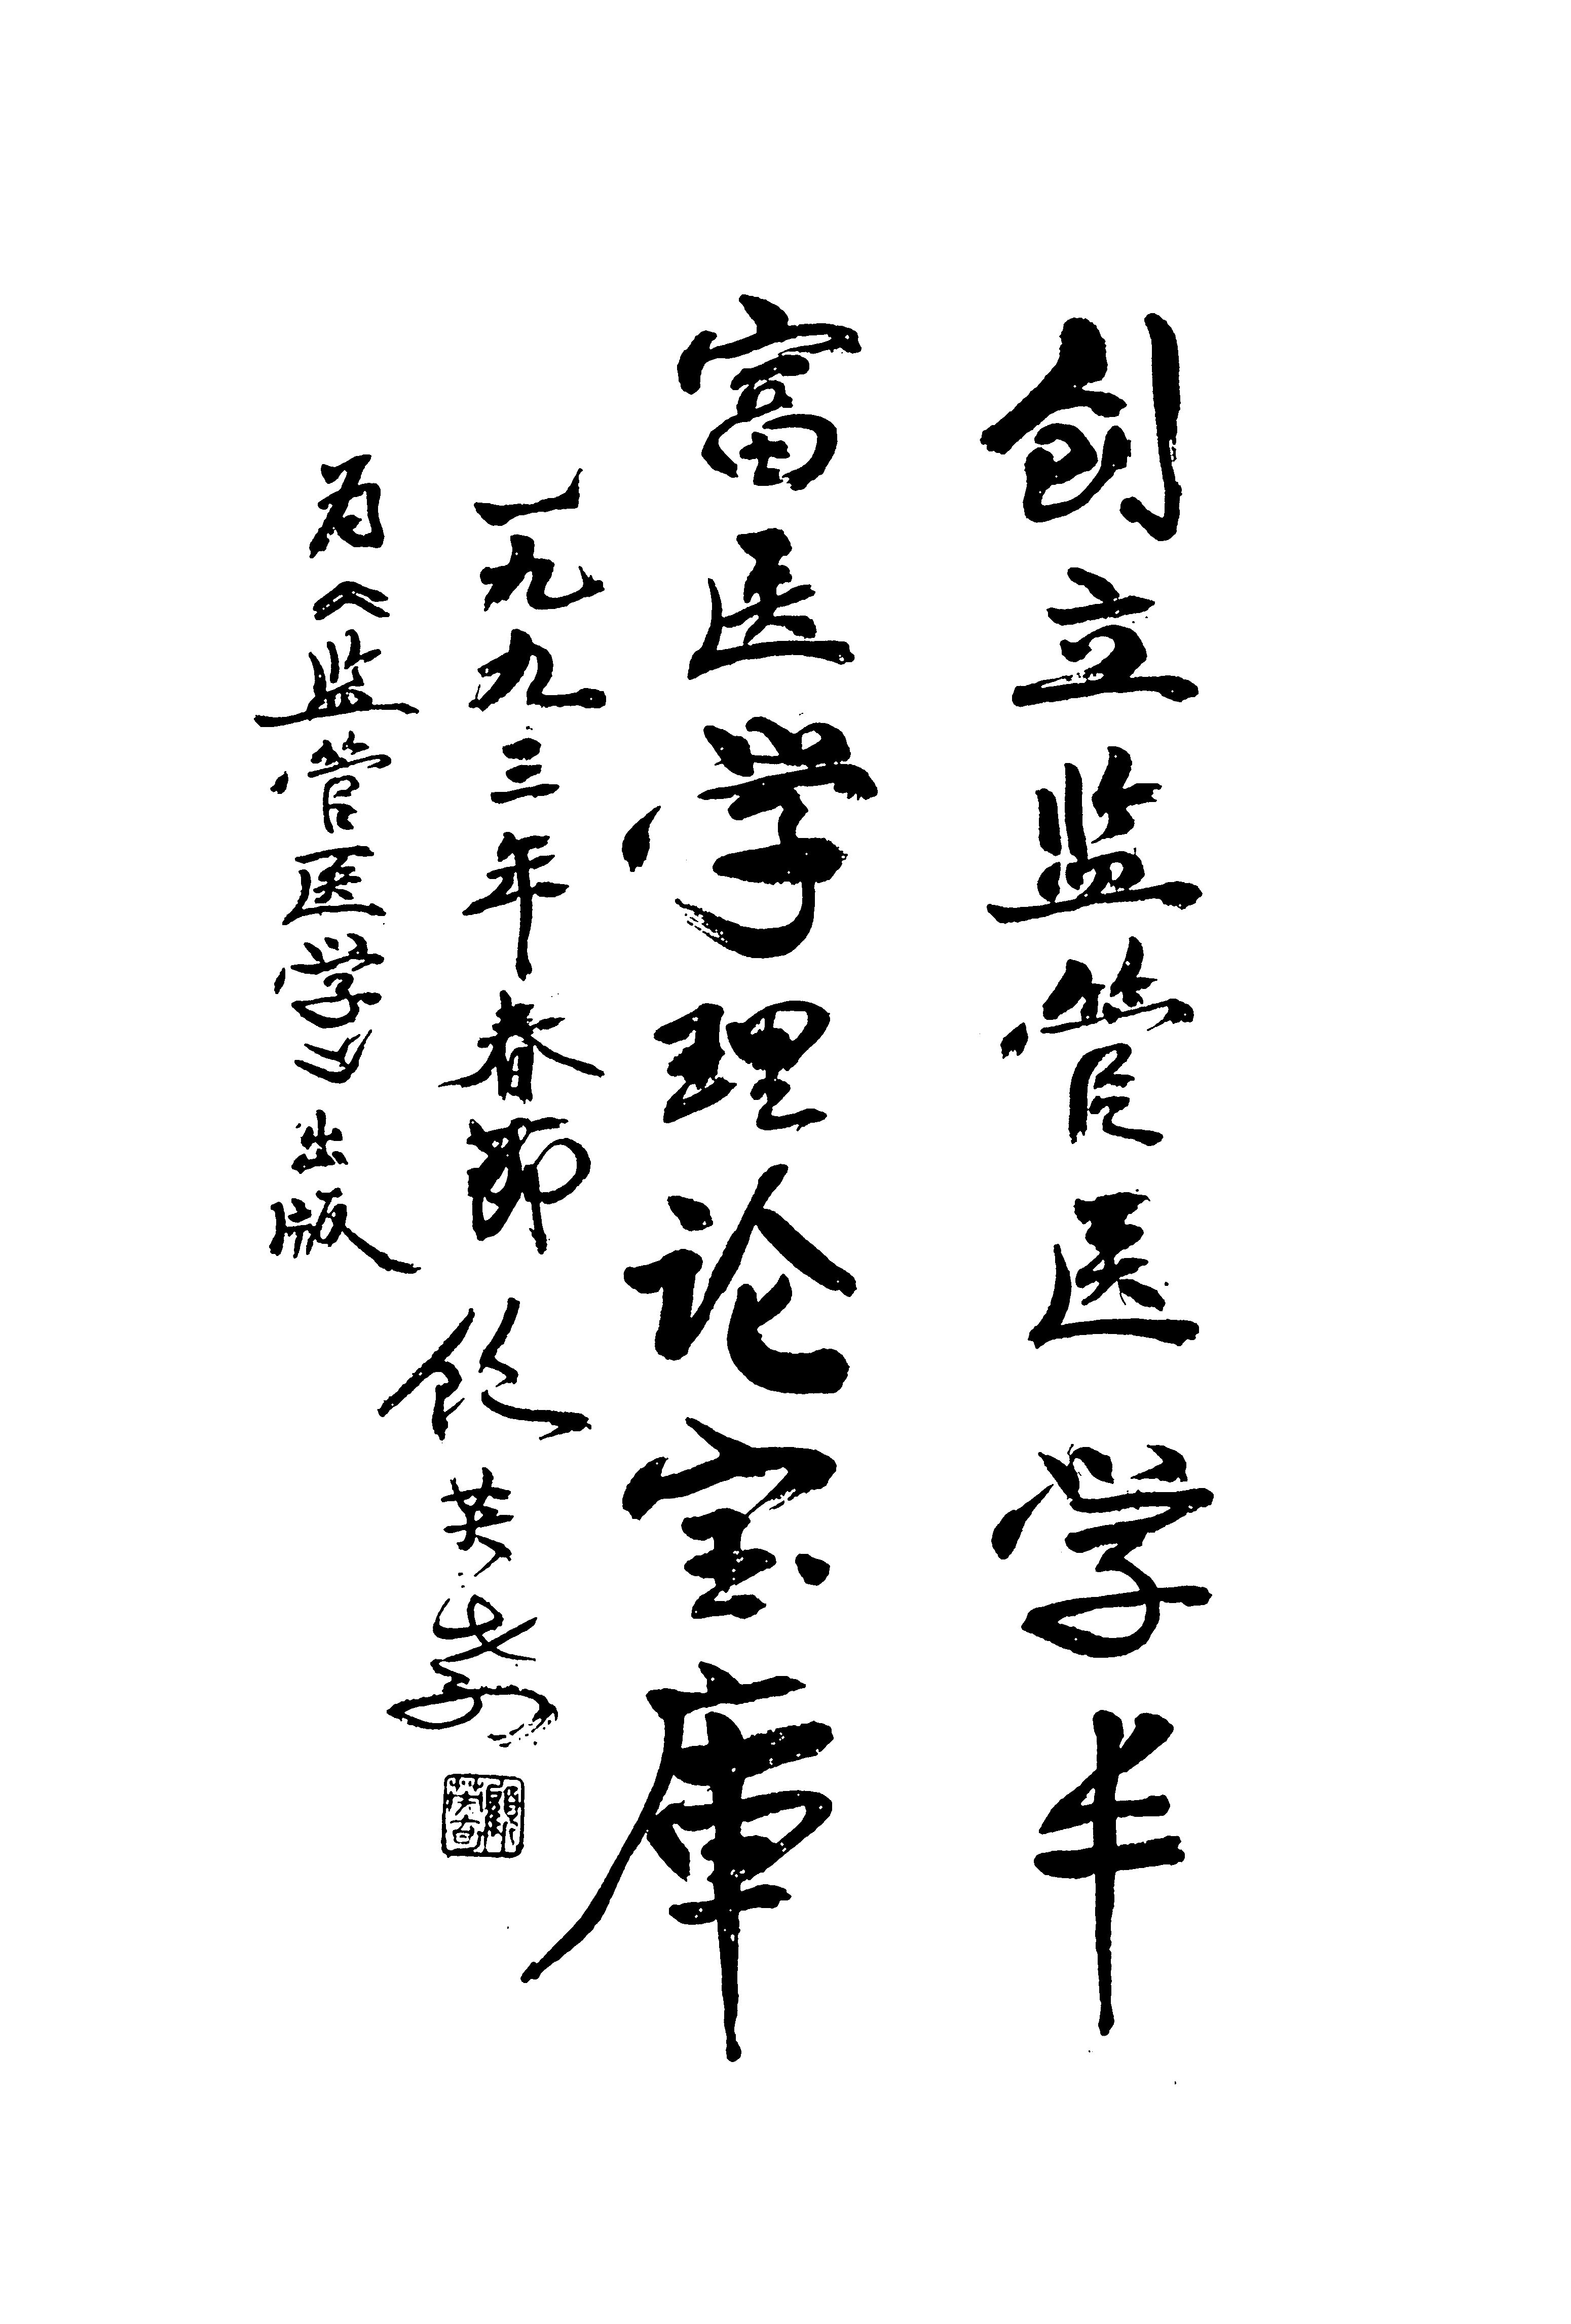 创立监管医学丰
富医学理论宝库
一九九三年春节 顾英奇
为《监管医学》出版